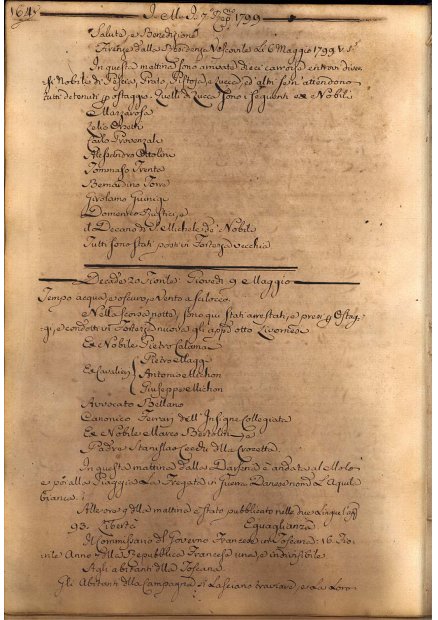 164
1799
Salute, e Benedizione
Firenze dalla Residenza Vescovile li 6 Maggio 1799 V. S.
In questa mattina sono arrivate dieci carrozze entrovi diver-
si Nobili di Pescia, Prato, Pistoja, e Lucca, ed altri se n'attendono
tutti detenuti p ostaggio. Quelli di Lucca sono i seguenti Ex Nobili
Mazzarosa
Lelio Orsetti
Carlo Provenzali
Alessandro Ottolini
Tommaso Trenta
Bernardino
Girolamo Guinigi
Domenico e
Decano di S. Michele de' Nobili
Tutti sono stati posti in Fortezza vecchia
Decade 20 Fiorile Giovedì 9 Maggio
Tempo acqua, e oscuro, e Vento a scilocco
Nella scorsa notte, sono qui stati arrestati, e presi p Ostag-
gi, e condotti in Fortezza nuova gli app. otto Livornesi
Ex Nobile Pietro Calamai
Ex Cavalieri
Pietro Maggi
Antonio Michon
Giuseppe Michon
Avvocato Bellano
Canonico Ferrari dell' Insigne Collegiata
Ex Nobile Marco Bertolini, e
Padre Stanislao della Crocetta
In questa mattina dalla Darsena è andata al Molo
e poi alla Piaggia La Fregata di Guerra Danese nom. L'Aquila
bianca
Alle ore 9 della mattina è stato pubblicato nelle due Lingue
93. Libertà Eguaglianza
Il Commissario del Governo Francese in Toscana: 16 Fio-
rile Anno della Repubblica Francese una, e indivisibile
Agli abitanti della Toscana
Gli Abitanti della Campagna si lasciano traviare, e la loro